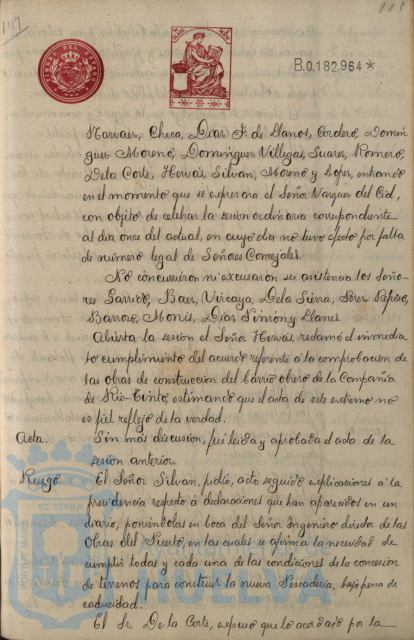 147
118
TIMBRE DEL ESTADO
B.0.182.964*
Narvaez, Checa, Diaz F. de Llanos, Cordero, Domin
guez Moreno, Dominguez Villegas, Suarez, Romero,
De la Corte, Hervás, Silvan, Moreno y Lopez, entrando
en el momento que se expresara el Señor Vazquez del Cid,
con objeto de celebrar la sesion ordinaria correspondiente
al dia once del actual, en cuyo dia no tuvo efecto por falta
de numero legal de Señores Concejales.
No concurrieron ni excusaron su asistencia los Seño-
res Garrido, Baez, Vizcaya, De la Sierra, Perez
Barroso, Monis, Diaz Pinzón y Llanes.
Abierta la sesion el Señor Hervás, reclamó el inmedia
to cumplimiento del acuerdo referente á la comprobacion de
las obras de construccion del barrio obrero de la Compañia
de Rio-Tinto, estimando que el acta de este extremo no
es fiel reflejo de la verdad.
Acta. Sin más discusion, fué leida y aprobada el acta de la
sesion anterior.
Ruego. El Señor Silvan, pidió, acto seguido explicaciones á la
presidencia respecto á declaraciones que han aparecido en un
diario, poniendolas en boca del Señor Ingeniero director de las
Obras del Puerto, en las cuales se afirma la necesidad de
cumplir todas y cada una de las condiciones de la concesion
de terrenos para construir la nueva Pescaderia, bajo pena de
caducidad.
El Sr. De la Corte, expuso que lo acordado por la